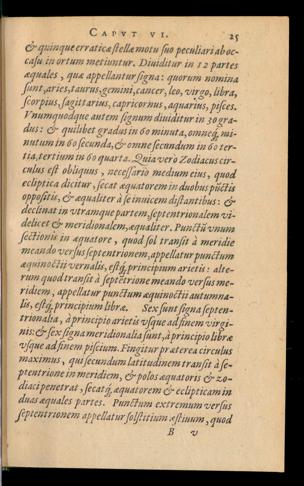 CAPVT VI. 25
& quinque erraticæ stellæ motu suo peculiari ab oc-
casu in ortum metiuntur. Diuiditur in 12 partes
æquales, quæ appellantur signa: quorum nomina
sunt, aries, taurus, gemini, cancer, leo, virgo, libra,
scorpius, sagittarius, capricornus, aquarius, pisces.
Vnumquodque autem signum diuiditur in 30 gra-
dus: & quilibet gradus in 60 minuta, omneq́; mi-
nutum in 60 secunda, & omne secundum in 60 ter-
tia, tertium in 60 quarta. Quia verò Zodiacus cir-
culus est obliquus, necessario medium eius, quod
ecliptica dicitur, secat æquatorem in duobus pūctis
oppositis, & æqualiter à se inuicem distantibus: &
declinat in vtramque partem, septentrionalem vi-
delicet & meridionalem, æqualiter. Punctū vnum
sectionis in æquatore, quod sol transit à meridie
meando versus septentrionem, appellatur punctum
æquinoctii vernalis, estq́; principium arietis: alte-
rum quod transit à septētrione meando versus me-
ridiem, appellatur punctum æquinoctii autumna-
lis, estq́; principium libræ. Sex sunt signa septen-
trionalia, à principio arietis vsque ad finem virgi-
nis: & sex signa meridionalia sunt, à principio libræ
vsque ad finem piscium. Fingitur præterea circulus
maximus, qui secundum latitudinem transit à se-
ptentrione in meridiem, & polos æquatoris & zo-
diaci penetrat, secatq́; æquatorem & eclipticam in
duas æquales partes. Punctum extremum versus
septentrionem appellatur solstitium æstiuum, quod
B v